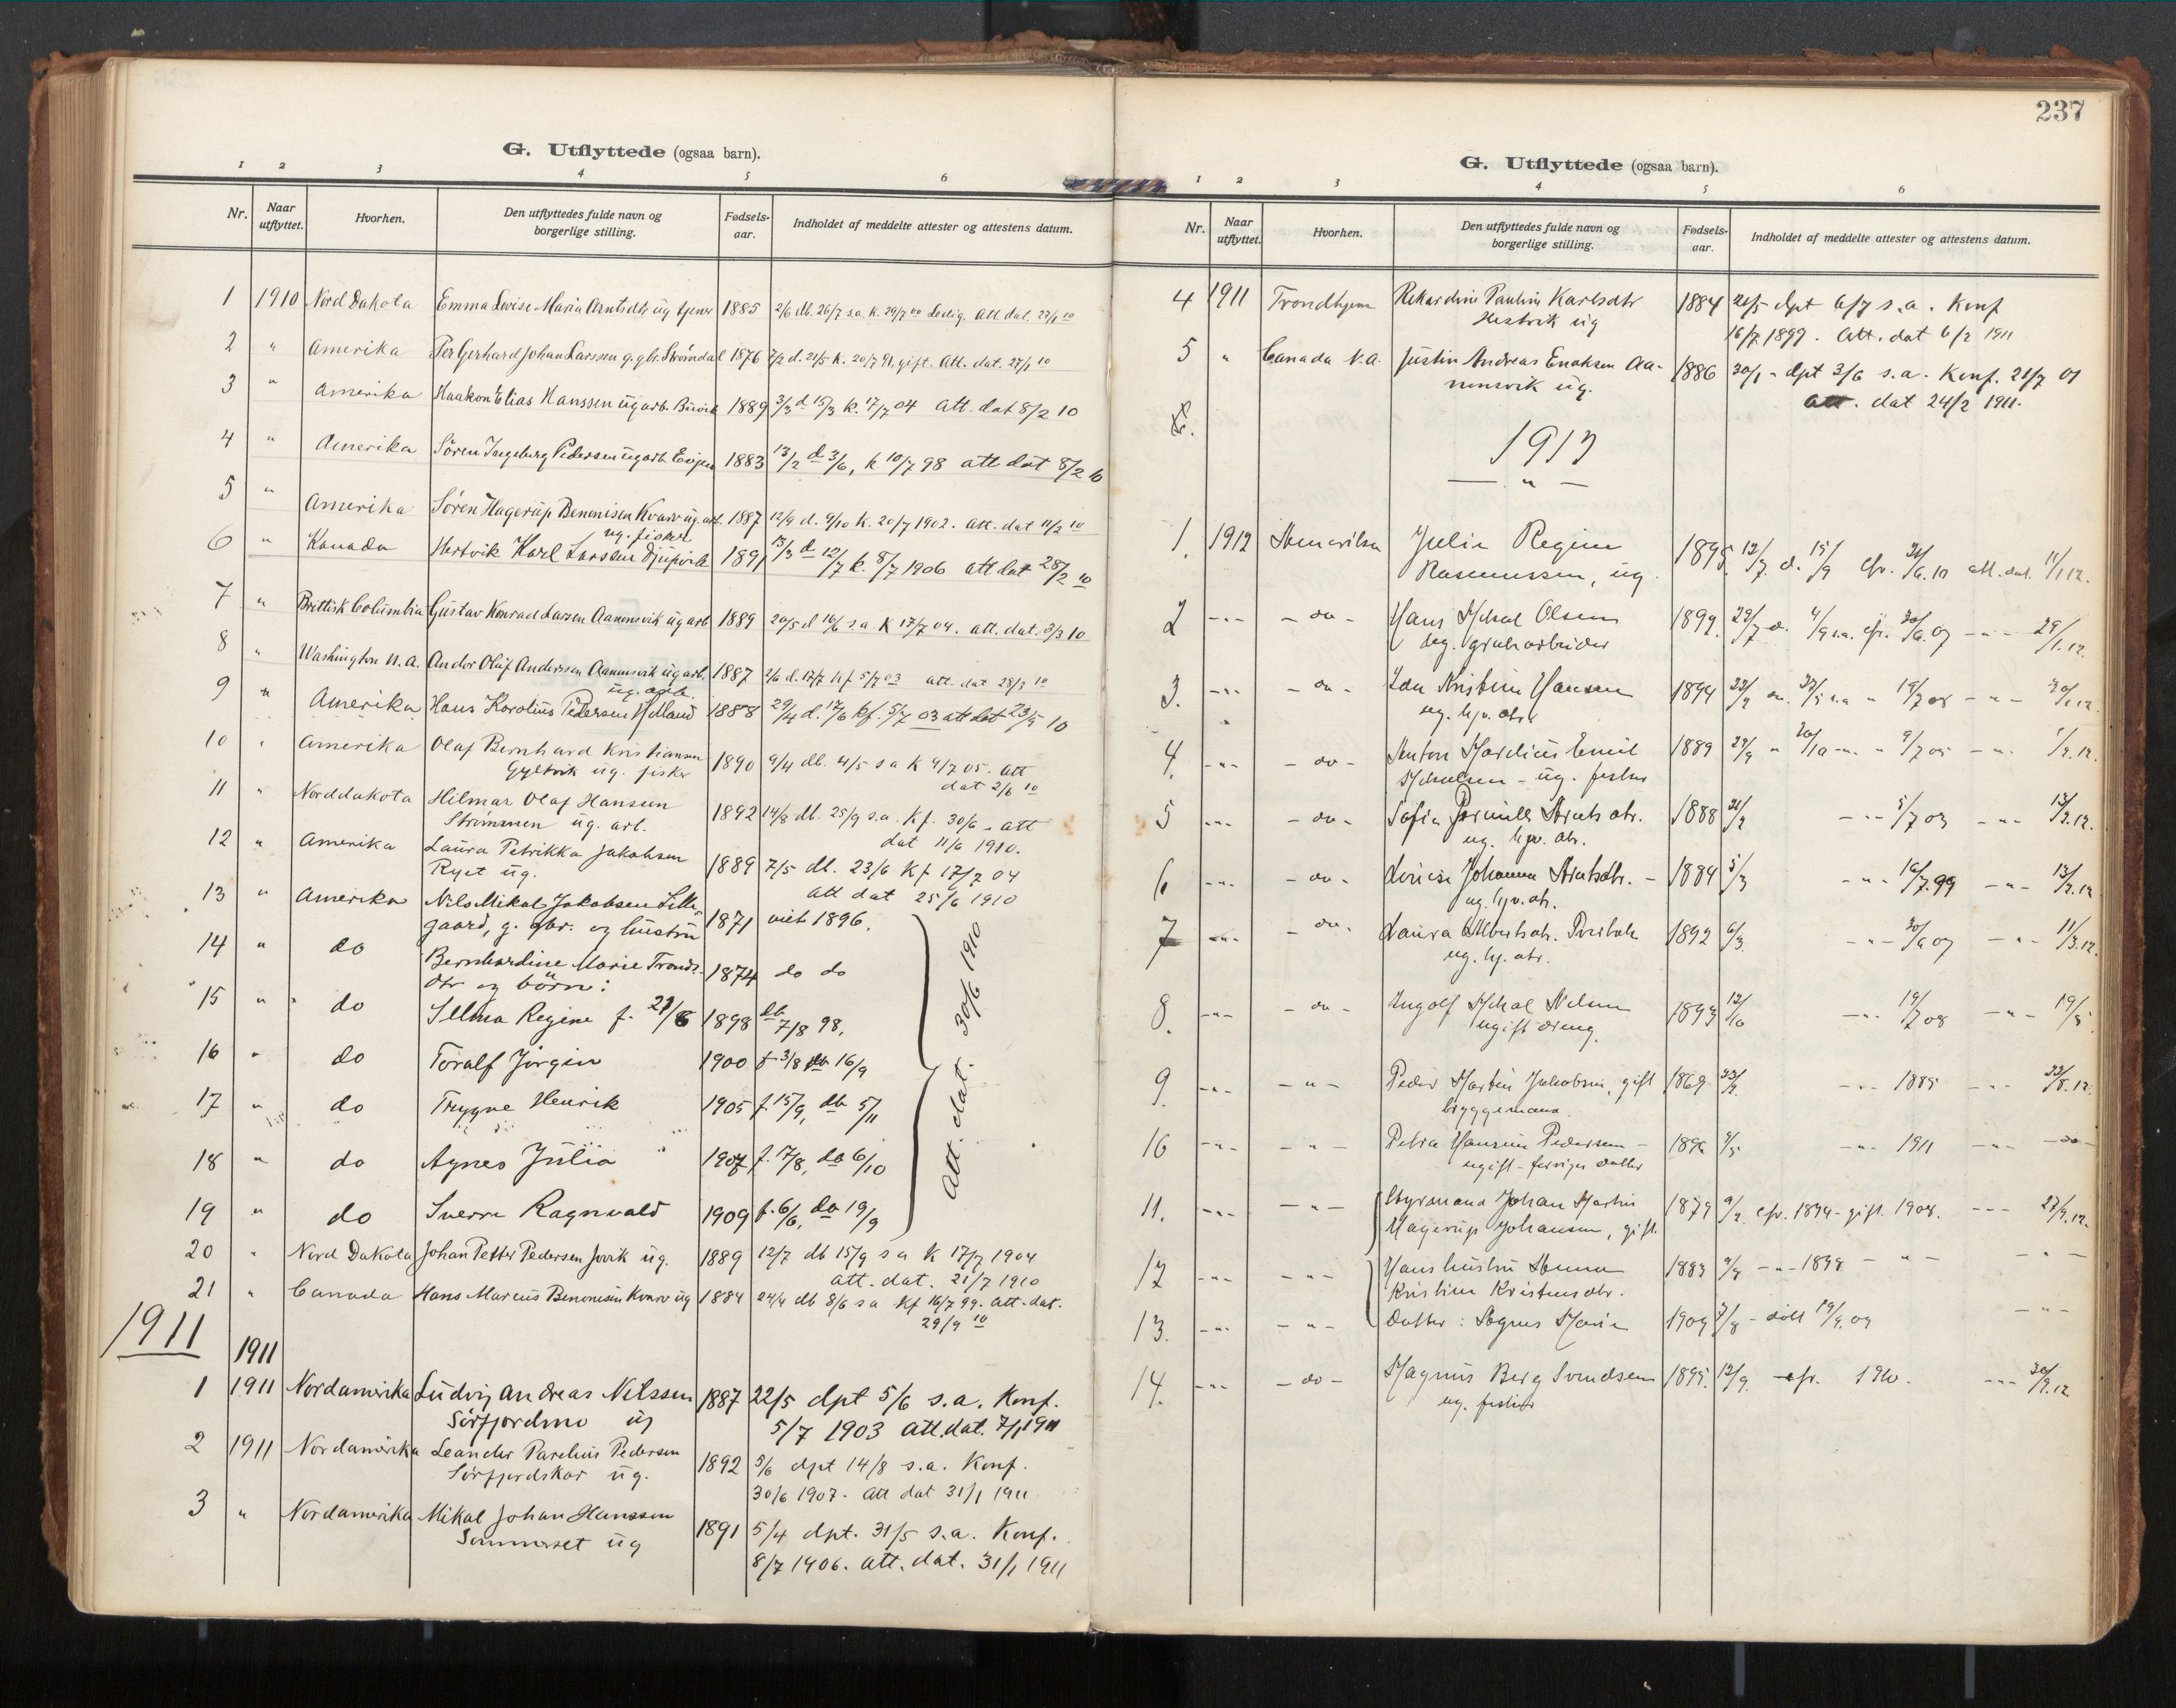 G. Utflyttede (ogsaa barn).
1 2 3 4 5 6
Nr. Naar utflyttet. Hvorhen. Den utflyttedes fulde navn og borgerlige stilling. Fødselsaar. Indholdet af meddelte attester og attestens datum.
1 1910 Nord Dakota Emma Lovise Maria Arntsdtr ug tjener 1885 2/6 db. 26/7 s.a. K. 29/7 00 Ledig. Att. dat. 27/1 10
2 " Amerika Per Gerhard Johan Larssen g. gbr. Strømdal 1876 7/2 d. 21/5 K. 20/7 91, gift. Att. dat. 27/1 10
3 " Amerika Haakon Elias Hanssen ug arb. 1889 3/3 d 15/3 k. 17/7 04 att. dat 8/2 10
4 " Amerika Sören Ingeburg Pedersen ug arb. Evjen 1883 13/2 d 3/6, k. 10/7 98 att dat 8/2 10
5 " Amerika Sören Hagerup Benonisen Kvarv ug. arb. 1887 12/9 d. 9/10 K. 20/7 1902. att. dat 11/2 10
ug. fisker
6 " Kanada Hertvik Karl Larssen Djupvik 1891 13/3 d 12/7 k. 8/7 1906 att dat 28/2 10
7 " Brittisk Columbia Gustav Konrad Larsen Aanensvik ug arb 1889 20/5 d 16/6 s.a K 17/7 04. att. dat. 3/3 10
8 " Washington N.A. Andor Oluf Anderssen Aanensvik ug arb. 1887 2/6 d. 17/7 kf 5/7 03 att. dat 28/3 10
ug. arb.
9 " Amerika Hans Karolius Pedersen Helland 1888 29/4 d. 17/6 kf. 5/7 03 att dat 23/5 10
10 " Amerika Olaf Bernhard Kristiansen 1890 9/4 db. 4/5 s a K 9/7 05. att
Gyltvik ug. fisker dat 2/6 10
11 " Norddakota Hilmar Olaf Hanssen 1892 14/8 db. 25/9 s.a. Kf. 30/6 - att
Strömmen ug. arb. dat 11/6 1910.
12 " Amerika Laura Petrikka Jakobsen 1889 7/5 db. 23/6 Kf 17/7 04
Ryet ug. att dat 25/6 1910
13 " Amerika Nils Mikal Jakobsen Lille- 1871 viet 1896.
gaard, g. gbr. og hustru
14 " do Bernhardine Marie Tronds- 1874 do do
dtr og börn:
15 " do Selma Regine f. 21/6 1898 db 7/8 98.
16 " do Toralf Jörgin 1900 f 3/8 db 16/9
17 " do Trygve Henrik 1905 f. 15/9, db 5/11
18 " do Agnes Julia 1907 f. 17/8, db 6/10
19 " do Sverre Ragnvald 1909 f. 6/6, db 19/9
Att. dat. 30/6 1910
20 " Nord Dakota Johan Petter Pedersen Jovik ug. 1889 12/7 db 15/9 s a K 17/7 1904
att. dat. 21/7 1910
21 " Canada Hans Marcus Benonisen Kvarv ug 1884 24/4 db 8/6 s a Kf 16/7 99. att. dat.
29/9 10
1911
1911
1 1911 Nordamerika Ludvig Andreas Nilssen 1887 22/5 dpt 5/6 s.a. Konf.
Sörfjordmo ug 5/7 1903 att. dat. 7/1 1911
2 1911 Nordamerika Leander Parelius Pedersen 1892 5/6 dpt 14/8 s.a. Konf.
Sörfjordskar ug. 30/6 1907. att dat 31/1 1911
3 " Nordamerika Mikal Johan Hanssen 1891 5/4 dpt. 31/5 s.a. Konf.
Sommerset ug 8/7 1906. att. dat. 31/1 1911
237
G. Utflyttede (ogsaa barn).
1 2 3 4 5 6
Nr. Naar utflyttet. Hvorhen. Den utflyttedes fulde navn og borgerlige stilling. Fødselsaar. Indholdet af meddelte attester og attestens datum.
4 1911 Trondhjem Rikardine Pauline Karlsdtr 1884 21/5 dpt 6/7 s.a. Konf
Hestvik ug 16/7 1899. att. dat 6/2 1911
5 " Canada N.A. Justin Andreas Enoksen Aa- 1886 30/1 - dpt 3/6 s.a. Konf. 21/7 01
nensvik ug. att. dat 24/2 1911.
1913
— " —
1. 1912 Amerika Julie Regine 1895. 12/7. d. 15/9 cfr. 10 att. dat. 11/1 12.
Rasmussen, ug.
2 -"- - do - Hans Mikal Olsen 1892. 29/7 d. 4/9 s.a. cfr. 30/6.07 -"- 29/1.12.
ug. grubarbeider
3. -"- - do - Ida Kristine Hansen 1894 19/7 08 -"-
ug. hjv. dtr.
4. -"- - do - Anton Mardius Emil 1889 29/9 " 9/7 05 -"-
Mikalsen - ug. fisker
5 -"- - do - Sofie Arntsdtr. 1888 21/2 -"- 5/7 03 -"- 13/3.12.
ug. hjv. dtr.
6 -"- - do - Lovise Johanna Arntsdtr. - 1884 5/3 -"- 16/7.99 -"- 13/3.12
ug. hjv. dtr.
7 -"- - do - Laura Albertsdtr. 1892 6/3. -"- 30/6 07 -"- 11/3.12.
ug. hj. dtr.
8. -"- - do - Ingolf Mikal Nilsen 1893 12/10 -"- 19/7 08 -"- 19/5
ugift dreng.
9. -"- - " - Peder Martin Jakobsen, gift 1869 23/2. -"- 1885 -"- 23/8.12.
bryggemand.
10 -"- - " - Petra Hansine Pedersen - 1896 9/5 -"- 1911 -"- -do-
ugift - forriges datter
11. -"- - " - Styrmand Johan Martin 1879 9/2. cfr. 1894 - gift. 1908. -"- 27/9.12.
Hagerup Johansen, gift.
12 -"- - " - Hans hustru Anna 1883 9/8 -"- 1898 - " - - " -
Kristine Kristensdtr.
13. -"- - " - Datter: Agnes Marie 1909 7/8 - döbt 19/9.09 - " -
14. -"- - do - Magnus Berg Svendsen 1895. 12/9. cfr. 1910. -"- 30/9.12
ug. fisker